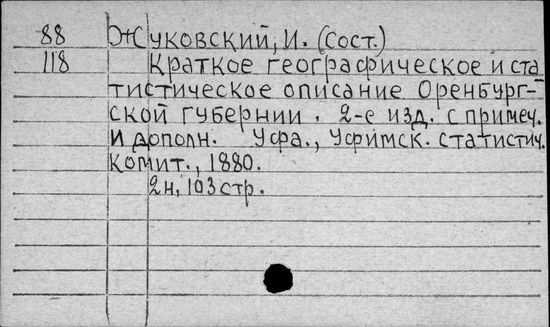 88 Жуковский, И. (сост.)
118 Краткое географическое и ста
тистическое описание Оренбург-
ской губернии. 2-е изд. с примеч.
и дополн. Уфа., Уфимск. статистич.
комит., 1880.
2н, 103 стр.